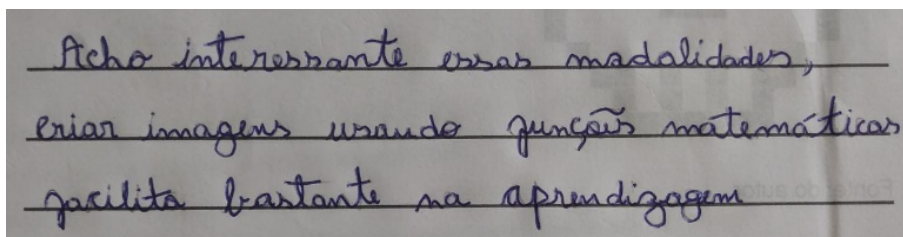 Acho interessante essas modalidades,
criar imagens usando funções matemáticas
facilita bastante na aprendizagem
Fonte: do autor